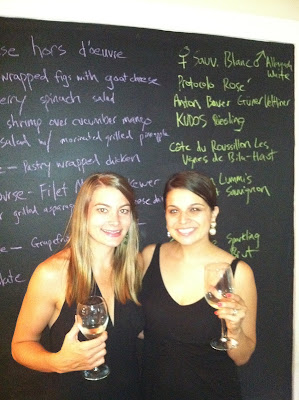 se hors d'oeuvre
wrapped figs with goat cheese
erry spinach salad
shrimp over cucumber mango
salad w/ marinated grilled pineapple
Pastry wrapped chicken
ourse - Filet
grilled asparagus
Grapefruit
late
Sauv. Blanc
White
Protocolo Rosé
Anton Bauer Grüner Veltliner
KUDOS Riesling
Côte du Roussillon Les
Vignes de Bila-Haut
Sauvignon
Sparkling
Brut